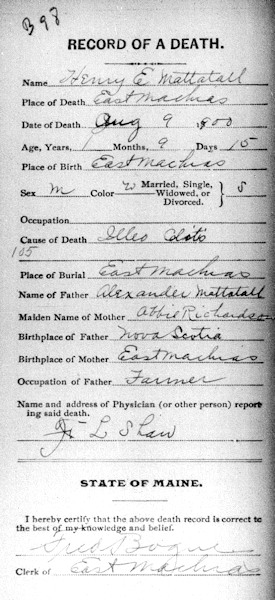 B98
RECORD OF A DEATH.
Name Henry E Mattatall
Place of Death East Machias
Date of Death Aug 9 900
Age, Years, 1 Months, 9 Days 15
Place of Birth East Machias
Sex M Color W Married, Single, Widowed, or Divorced. } S
Occupation
Cause of Death Illeo
105
Place of Burial East Machias
Name of Father Alexander Mattatall
Maiden Name of Mother Abbie Richardson
Birthplace of Father Nova Scotia
Birthplace of Mother East Machias
Occupation of Father Farmer
Name and address of Physician (or other person) report-
ing said death.
L Shaw
STATE OF MAINE.
I hereby certify that the above death record is correct to
the best of my knowledge and belief.
Fred Bogue
Clerk of East Machias